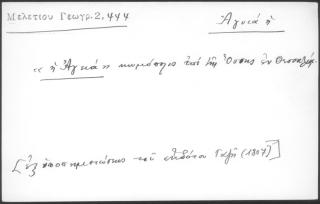 Μελετίου Γεωγρ. 2, 444
Ἀγυιά ἡ
« ἡ Ἀγυιά » κωμόπολις ὑπὸ τῆς Ὄσσης ἐν Θεσσαλίᾳ.
[ἐξ ὑποσημειώσεως τοῦ ἐκδότου Γαζῆ (1807)]